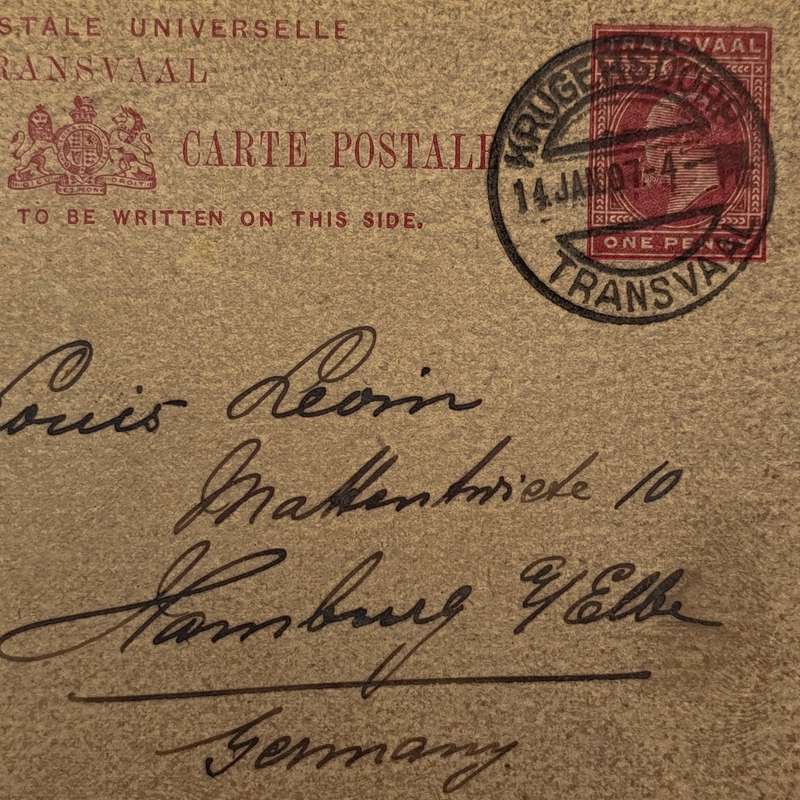 STALE UNIVERSELLE
RANSVAAL
CARTE POSTALE
TO BE WRITTEN ON THIS SIDE.
TRANSVAAL
ONE PENNY
KRUGERSDORP
14 JAN 07. 4-
TRANSVAAL
Louis Levin
Mattentwiete 10
Hamburg a/Elbe
Germany.